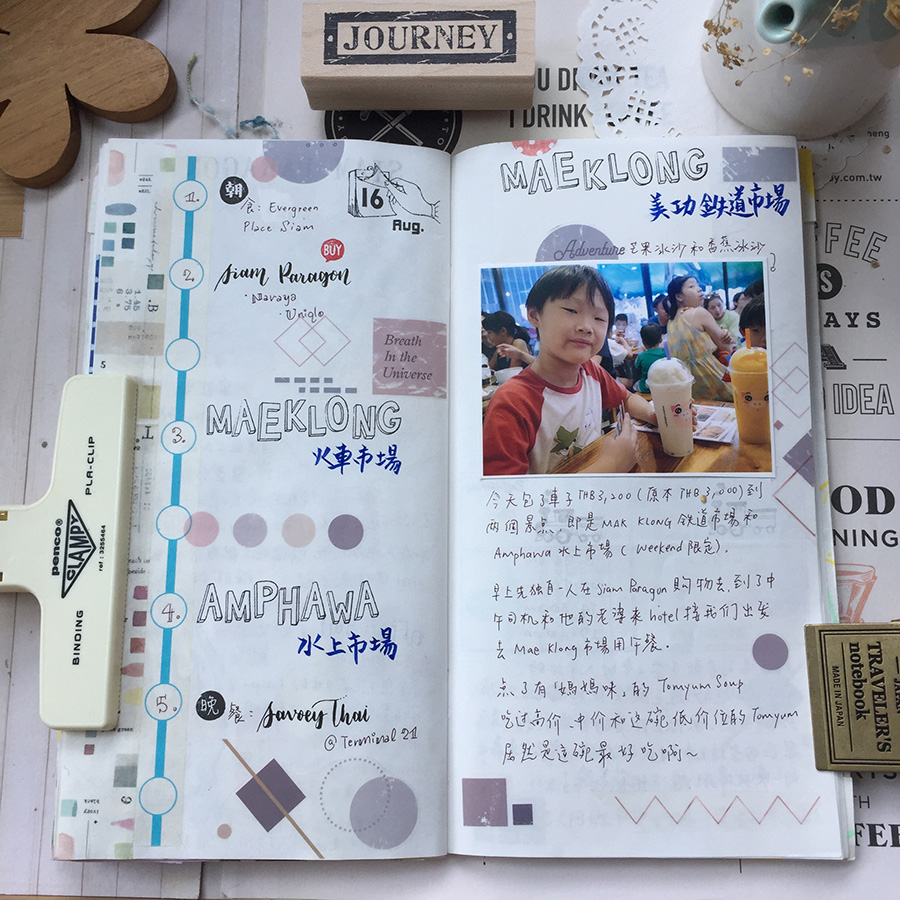 JOURNEY
I DRINK
1. 朝
食: Evergreen
Place Siam
16
Aug.
2. BUY
Siam Paragon
· Naraya
· Uniqlo
Breath
In the
Universe
MAEKLONG
3.
火車市場
AMPHAWA
4.
水上市場
5. 晚 餐: Savoey Thai
@ Terminal 21
MAEKLONG
美功鉄道市場
Adventure 芒果冰沙和香蕉冰沙
今天包了車子 THB 3,200 (原本 THB 3,000) 到
両個景点, 即是 MAK KLONG 鉄道市場和
Amphawa 水上市場 ( Weekend 限定).
早上先独自一人在 Siam Paragon 購物去, 到了中
午司机和他的老婆来 hotel 接我们出发
去 Mae Klong 市場用午餐.
点了有「媽媽味」的 Tomyum Soup
吃过高价、中价和这碗低价位的 Tomyum
居然是这碗最好吃啊~
penco®
CLAMPY
ref: 3255464
PLA-CLIP
BINDING
TRAVELER'S
notebook
MADE IN JAPAN
COFFEE
IS
ALWAYS
A
IDEA